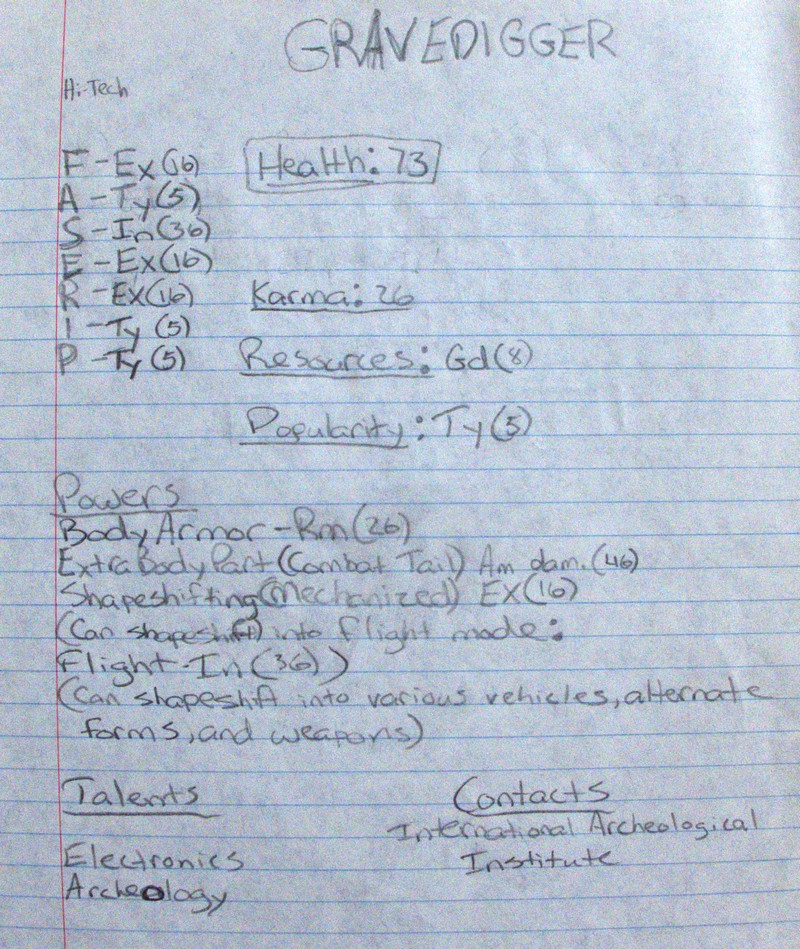 GRAVEDIGGER
Hi-Tech
F - Ex (16) Health: 73
A - Ty (5)
S - In (36)
E - Ex (16)
R - Ex (16) Karma: 26
I - Ty (5)
P - Ty (5) Resources: Gd (8)
Popularity: Ty (5)
Powers
Body Armor - Rm (26)
Extra Body Part (Combat Tail) Am dam. (46)
Shapeshifting (Mechanized) Ex (16)
(Can shapeshift) into flight mode:
Flight - In (36))
(Can shapeshift into various vehicles, alternate
forms, and weapons)
Talents Contacts
International Archeological
Electronics Institute
Archeology